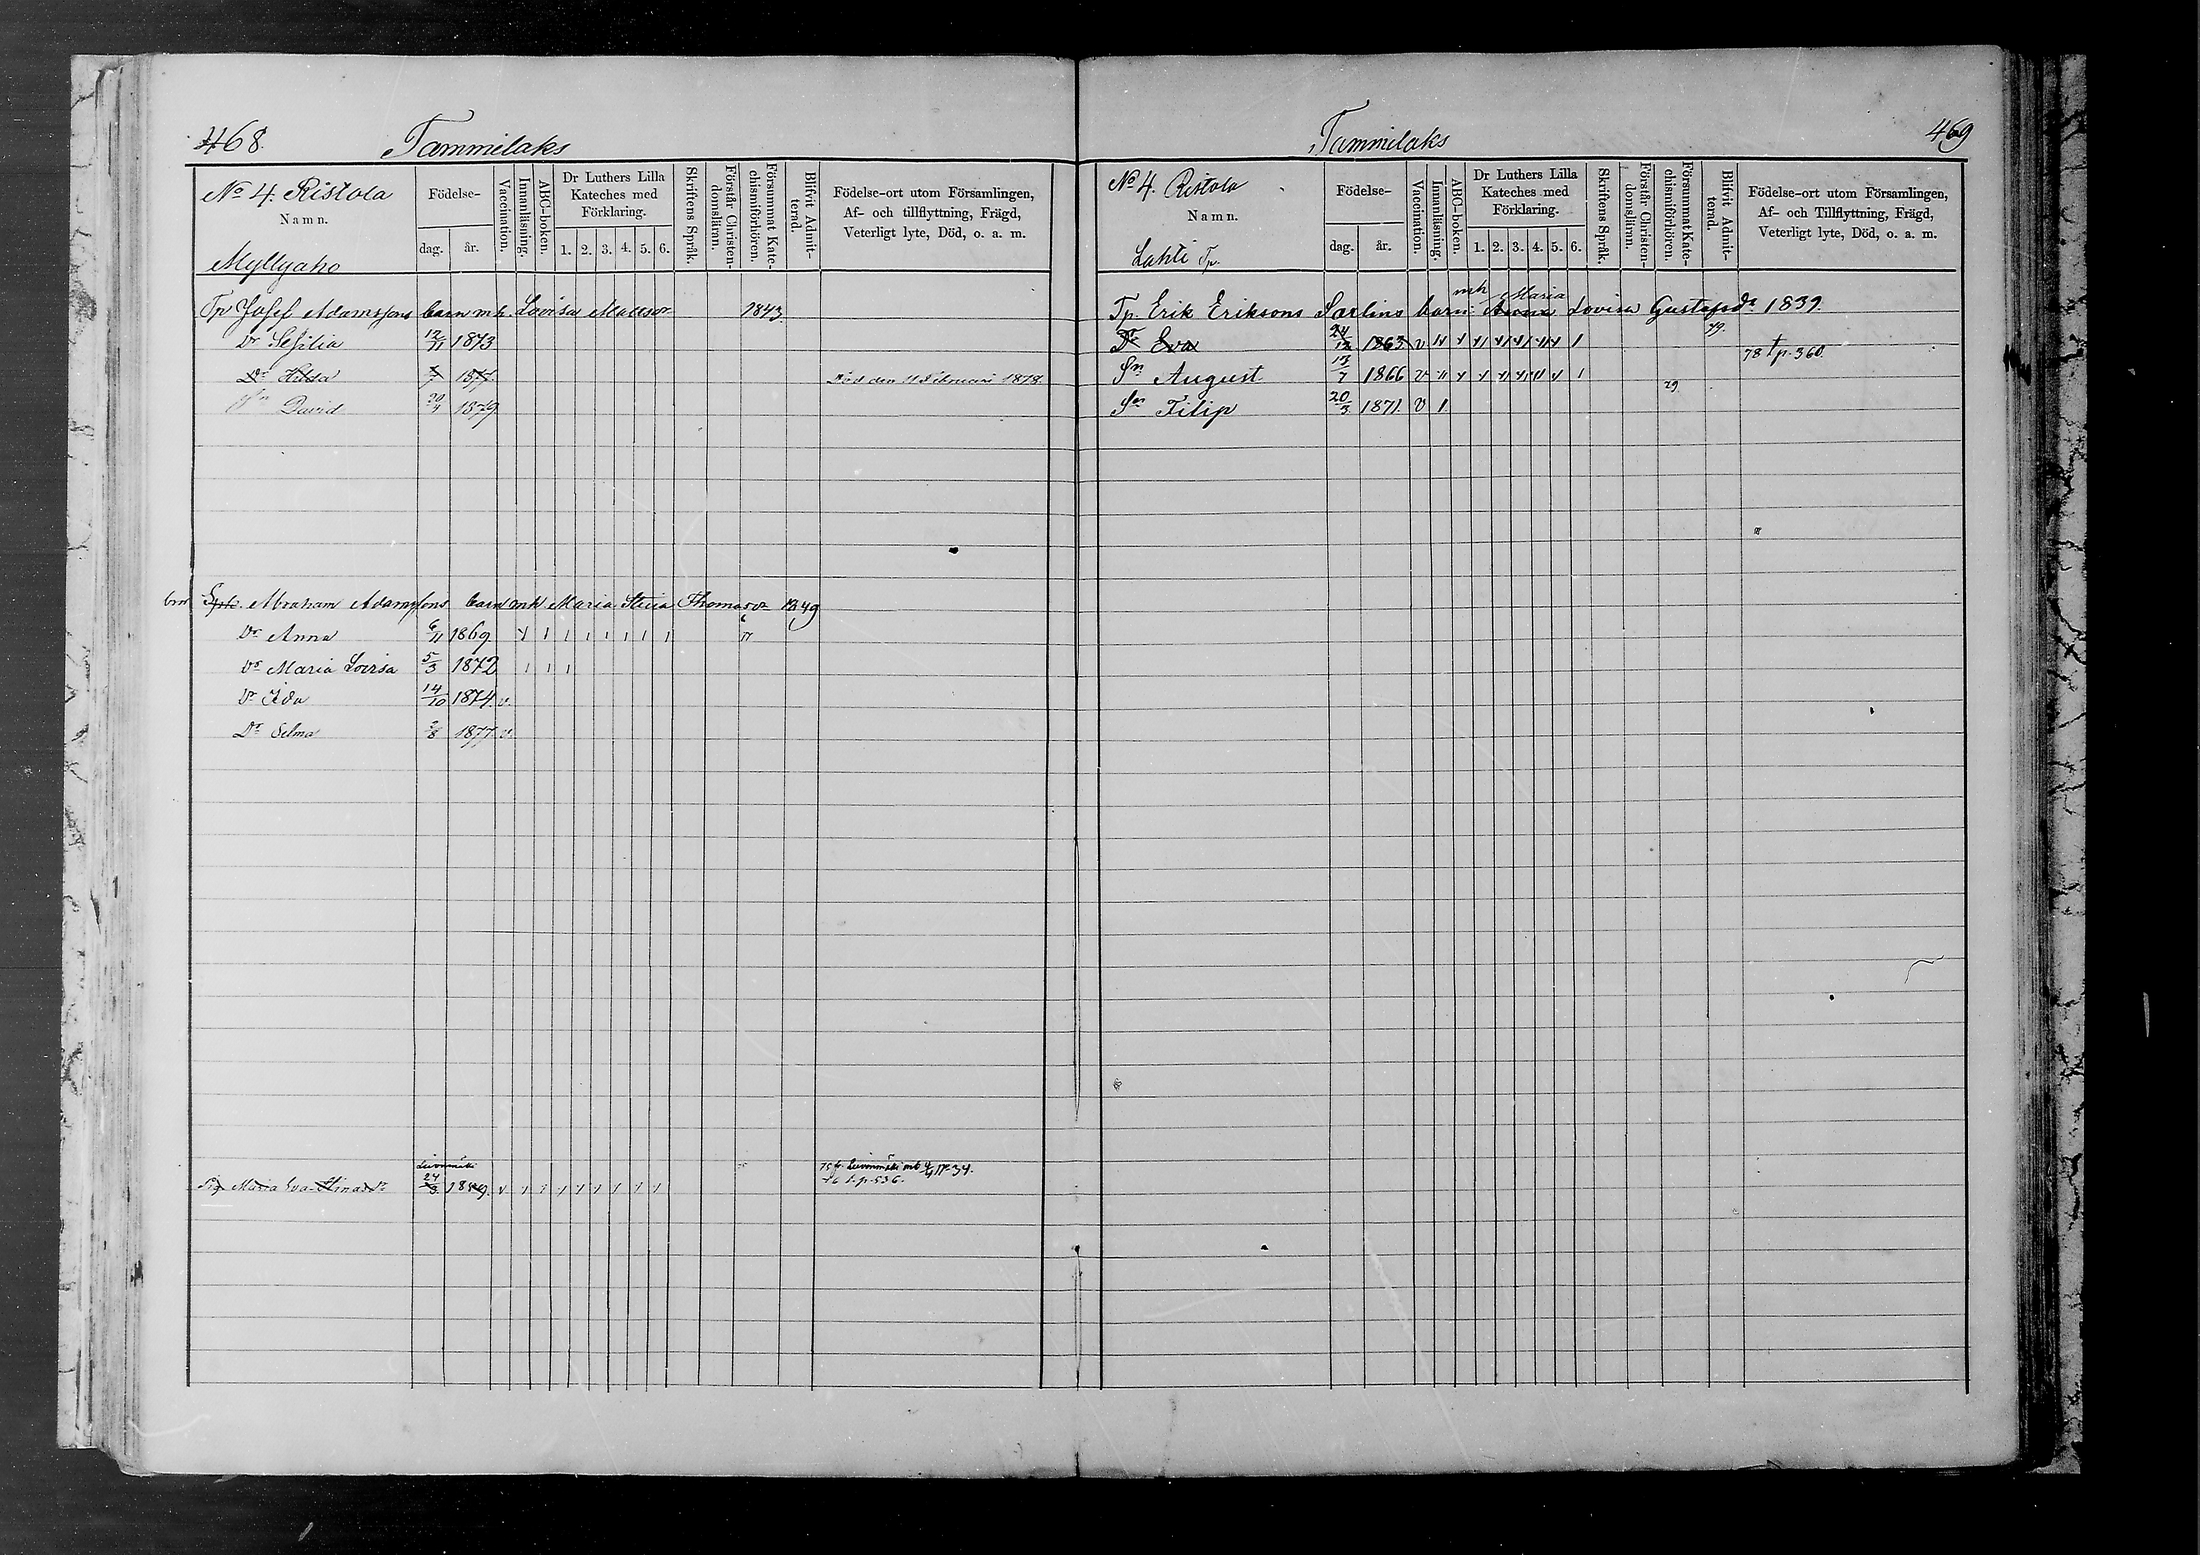 468.
Tammilaks
No 4. Ristola
Namn.
Myllyaho
Födelse-
dag.
år.
Vaccination.
Innanläsning.
ABC-boken.
Dr Luthers Lilla
Kateches med
Förklaring.
1. 2. 3. 4. 5. 6.
Skriftens Språk.
Förstår Christen-
domsläran.
Försummat Kate-
chismiförhören.
Blifvit Admit-
terad.
Födelse-ort utom Församlingen,
Af- och tillflyttning, Frägd,
Veterligt lyte, Död, o. a. m.
Tp Josef Adamssons barn mh. Lovisa Matsdr 1843.
Dr Sesilia 12/11 1873
Dr Hilda 1877. Död den 11 Februari 1878.
Sn David 20/4 1879
Abraham Adamssons barn mh Maria Stina Thomasdr 1849
Dr Anna 6/11 1869 1 1 1 1 1 1 1
Dr Maria Lovisa 5/3 1872 1 1 1
Dr Ida 14/10 1874. v.
Dr Selma 2/8 1877. v.
Leivonmäki
Maria Eva 24/3
p. 536.
469
Tammilaks
No 4. Ristola
Namn.
Lahti Tp.
Födelse-
dag.
år.
Vaccination.
Innanläsning.
ABC-boken.
Dr Luthers Lilla
Kateches med
Förklaring.
1. 2. 3. 4. 5. 6.
Skriftens Språk.
Förstår Christen-
domsläran.
Försummat Kate-
chismiförhören.
Blifvit Admit-
terad.
Födelse-ort utom Församlingen,
Af- och Tillflyttning, Frägd,
Veterligt lyte, Död, o. a. m.
mh Maria
Tp. Erik Eriksons Sarlins barn Anna Lovisa Gustafsdr 1839.
Dr Eva 24/12 1863 v 79. 78 t p. 360.
Sn August 13/7 1866 v 79
Sn Filip 20/3 1871. v 1.